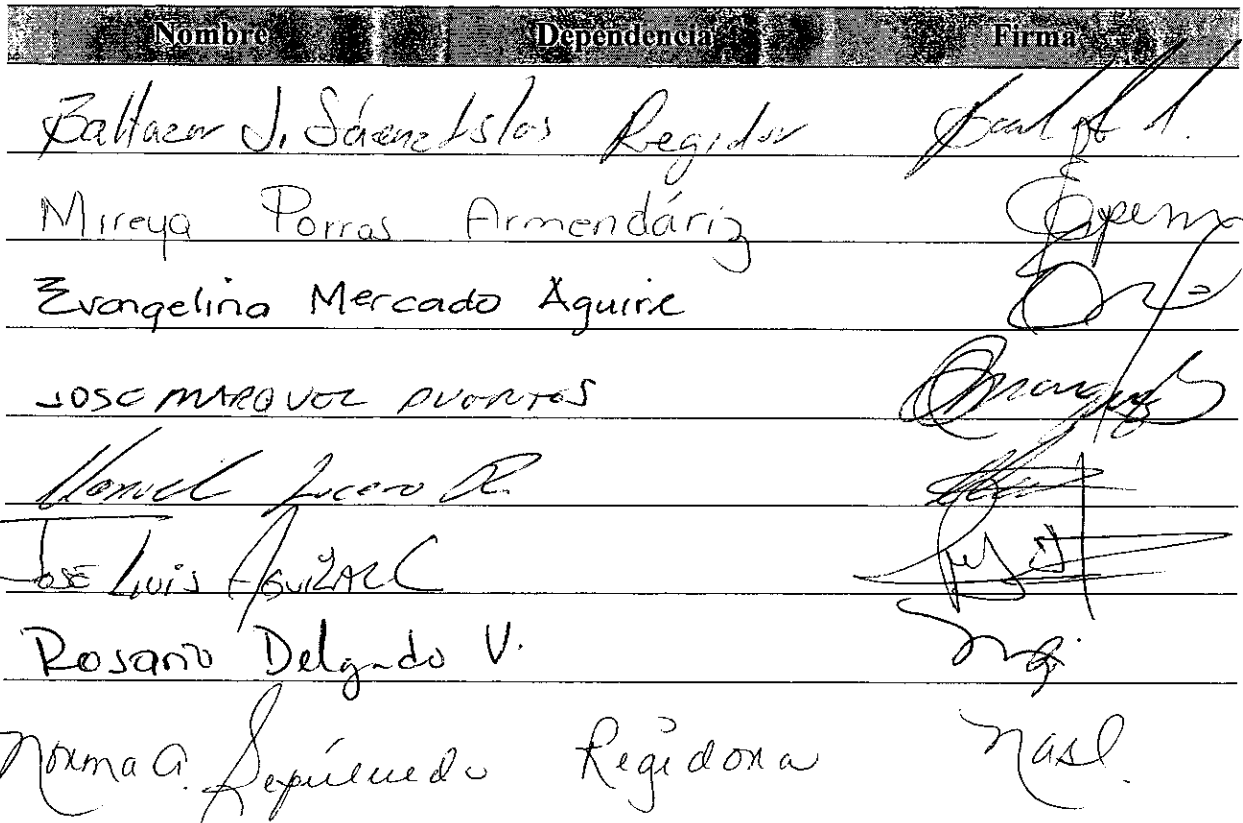 Nombre Dependencia Firma
Baltazar J. Sáenz Islas Regidor
Mireya Porras Armendáriz
Evangelina Mercado Aguirre
JOSE MARQUEZ PUENTES
Manuel Lucero R.
JOSE LUIS AGUILAR C
Rosario Delgado V.
Norma A. Sepúlveda Regidora Nasl.